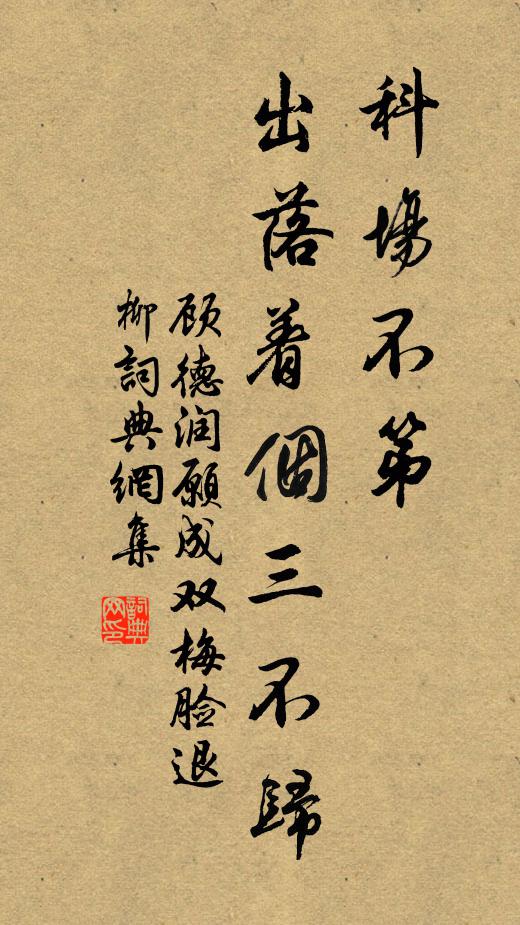 科場不第
出落着個三不歸
顾德润願成双梅脸退
柳詞典網集
詞典网印